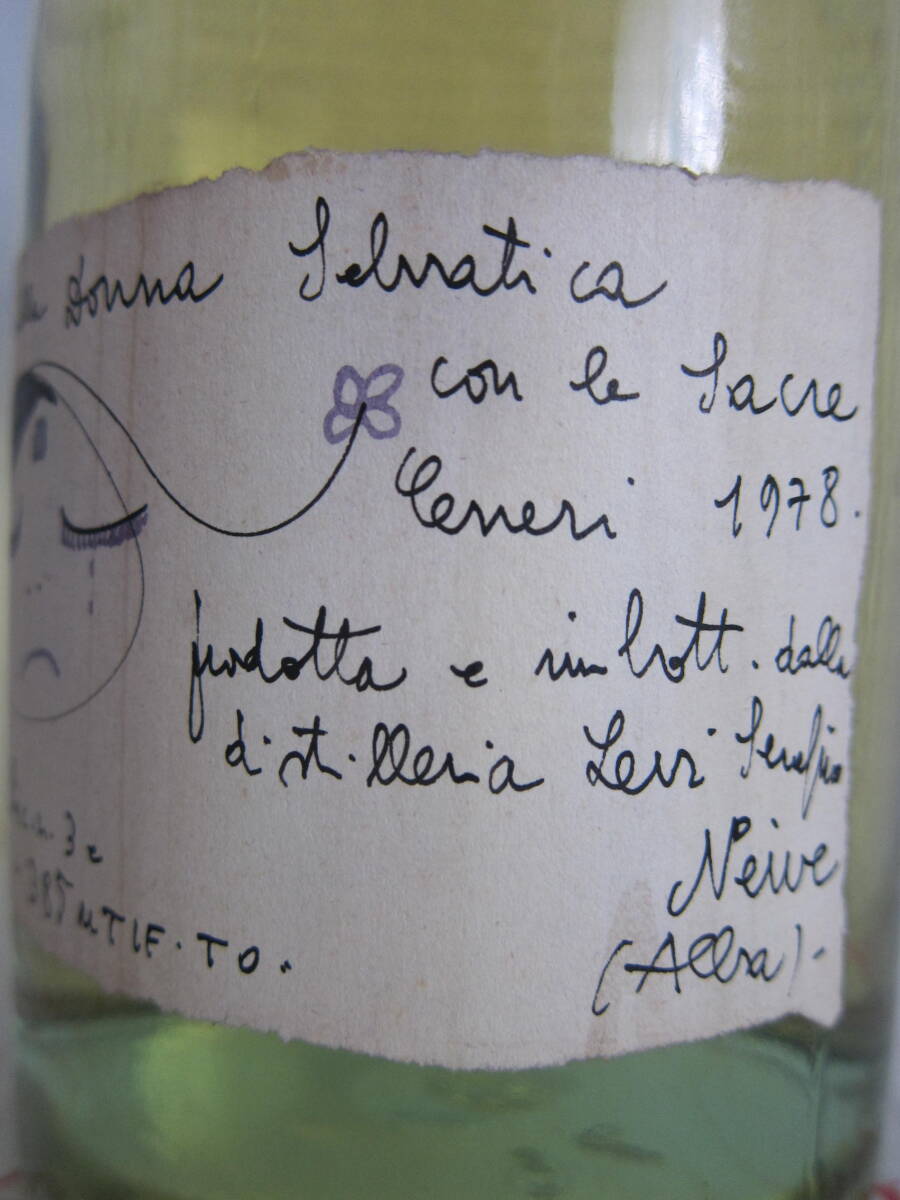 Donna Selvatica
con le Sacre
Ceneri 1978.
prodotta e imbott. dalla
distilleria Levi Serafino
Neive
(Alba).
3 e
385 UTIF. TO.